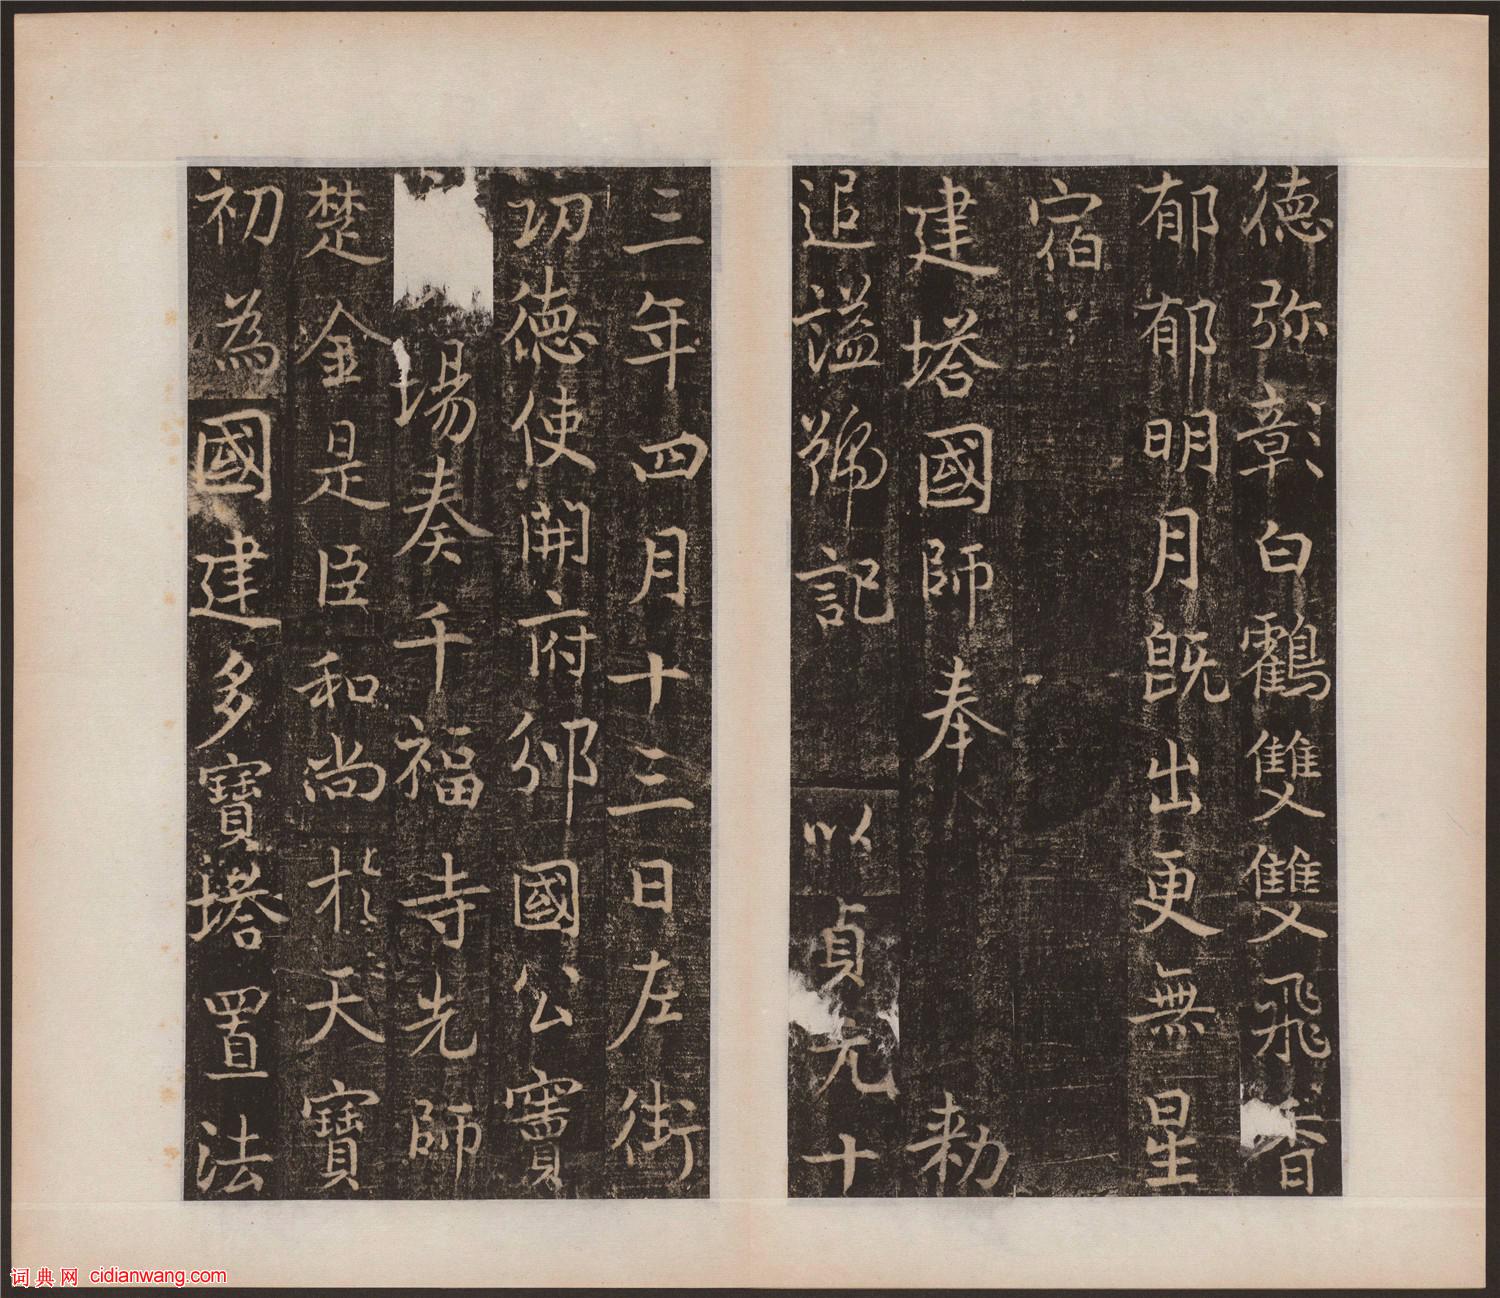 德弥彰白鶴雙雙飛香
郁郁明月既出更無星
宿
建塔國師奉 勅
追謚號記 以貞元十
三年四月十三日左街
功德使開府邠國公竇
場奏千福寺先師
楚金是臣和尚於天寶
初為國建多寶塔置法
词典网 cidianwang.com